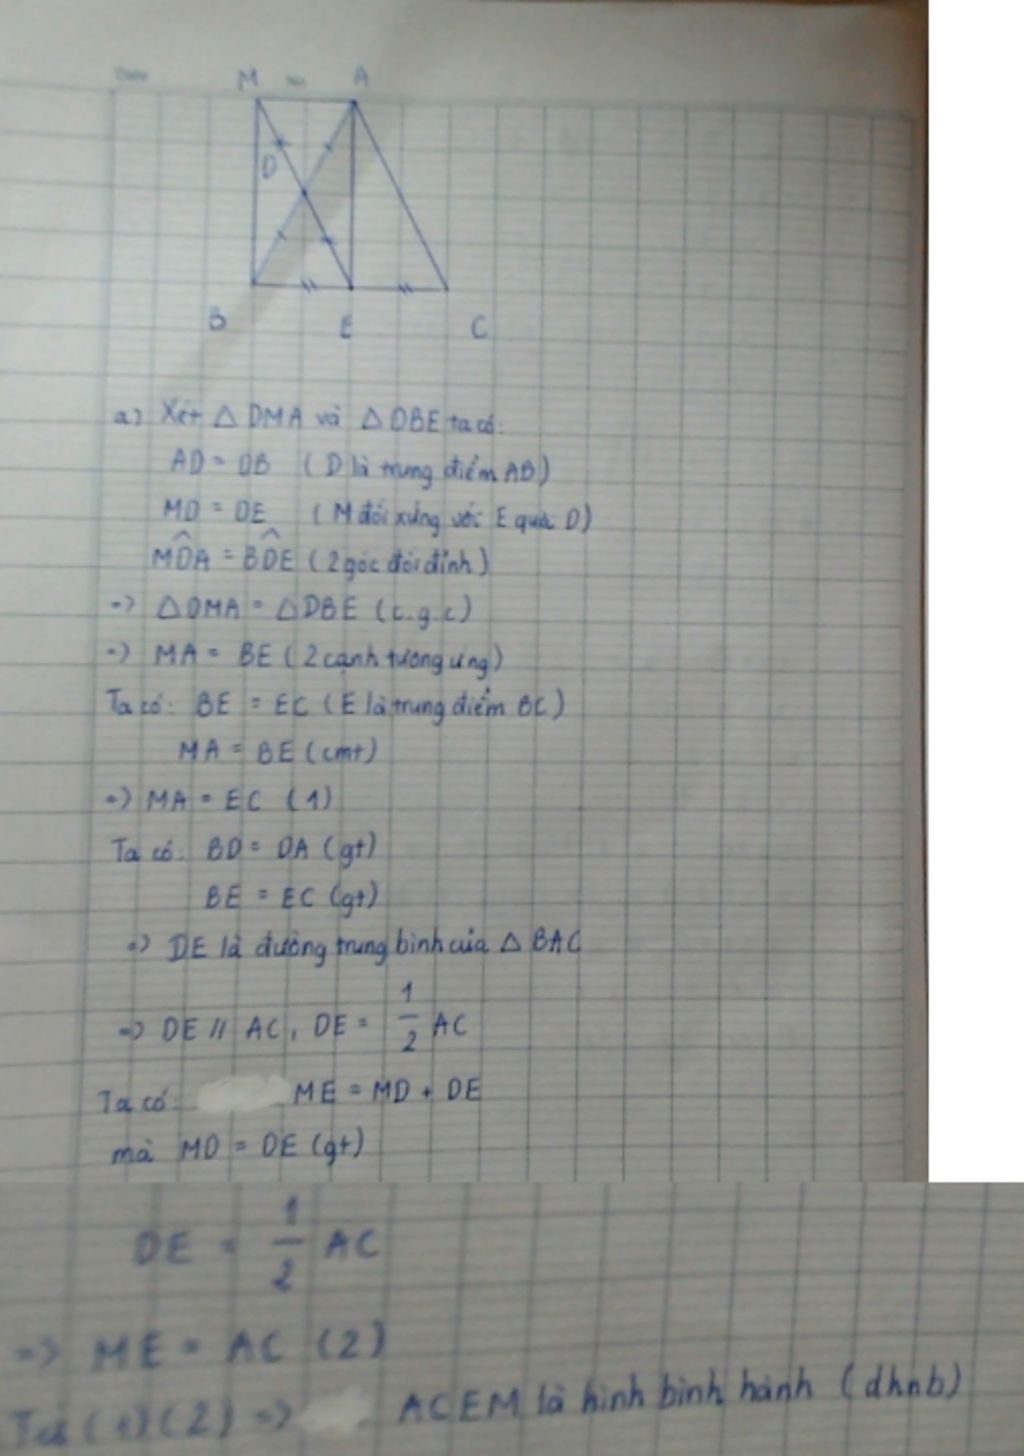 M A
D
B E C
a) Xét △ DMA và △ DBE ta có:
AD = DB ( D là trung điểm AB)
MD = DE ( M đối xứng với E qua D)
MDA = BDE ( 2 góc đối đỉnh )
=> △DMA = △DBE (c.g.c)
=> MA = BE ( 2 cạnh tương ứng)
Ta có: BE = EC ( E là trung điểm BC )
MA = BE (cmt)
=> MA = EC (1)
Ta có: BD = DA (gt)
BE = EC (gt)
=> DE là đường trung bình của △ BAC
=> DE // AC, DE = 1/2 AC
Ta có: ME = MD + DE
mà MD = DE (gt)
DE = 1/2 AC
=> ME = AC (2)
Từ (1)(2) => ACEM là hình bình hành (dhnb)